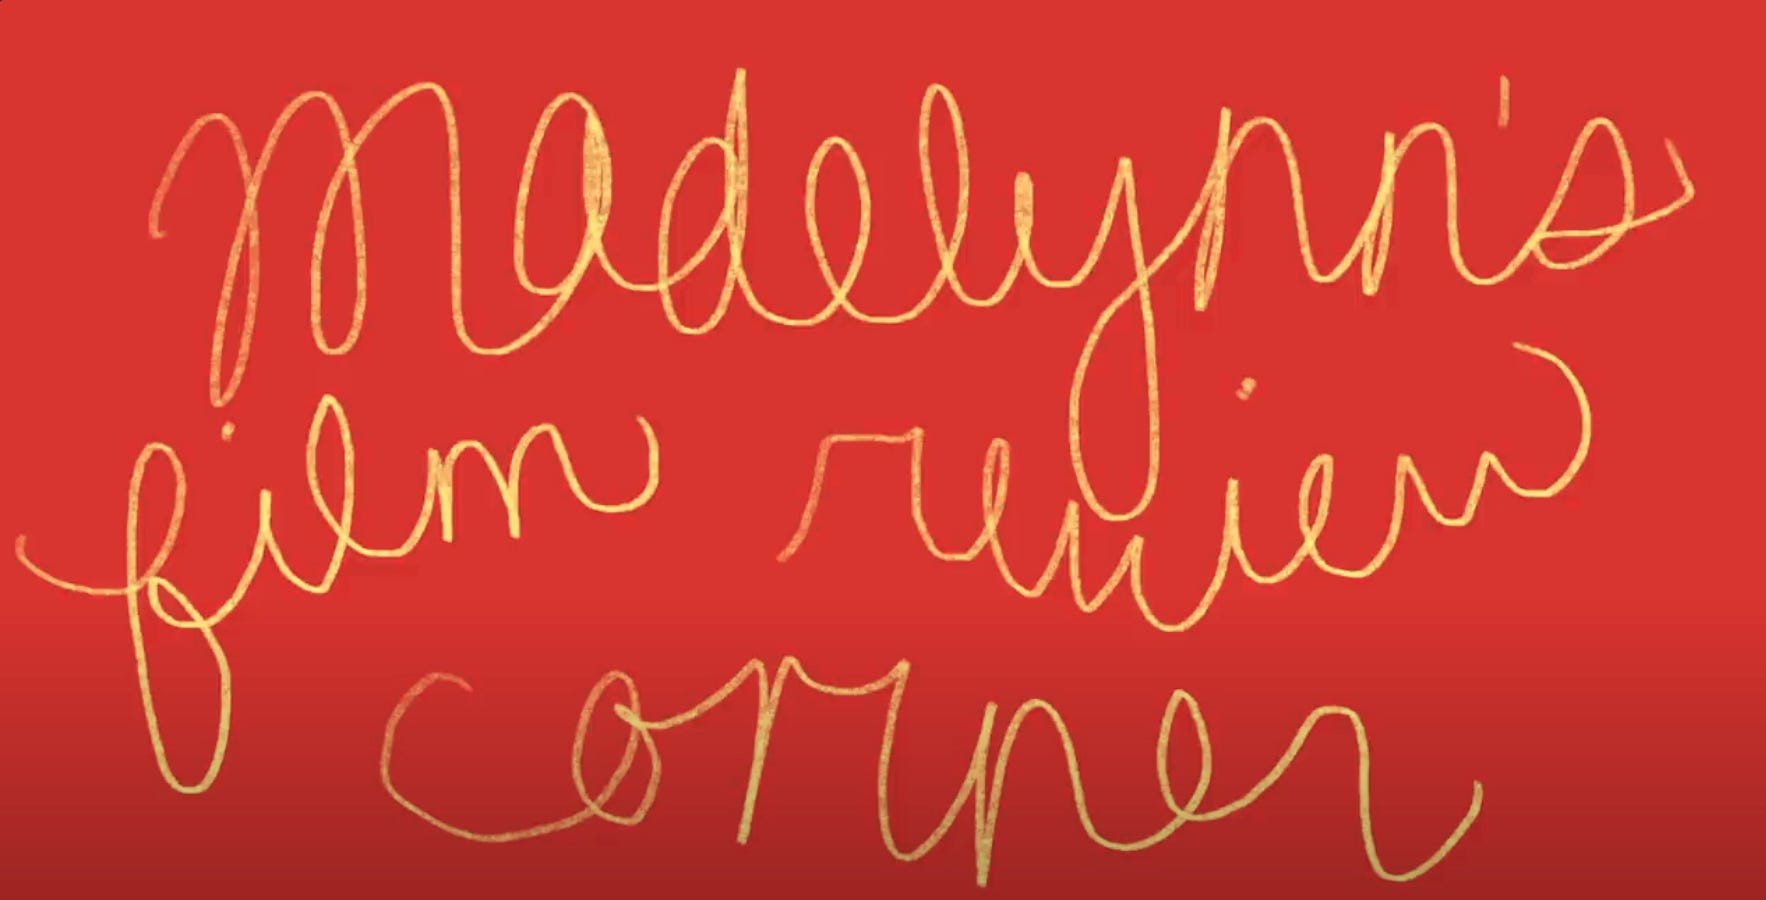 Madelynn's
film review
corner